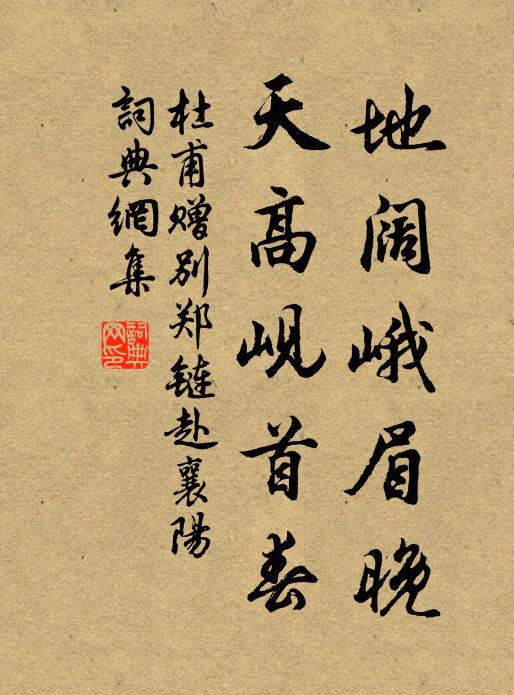 地阔峨眉晚
天高岘首春
杜甫赠别郑链赴襄陽
詞典網集
詞典网印